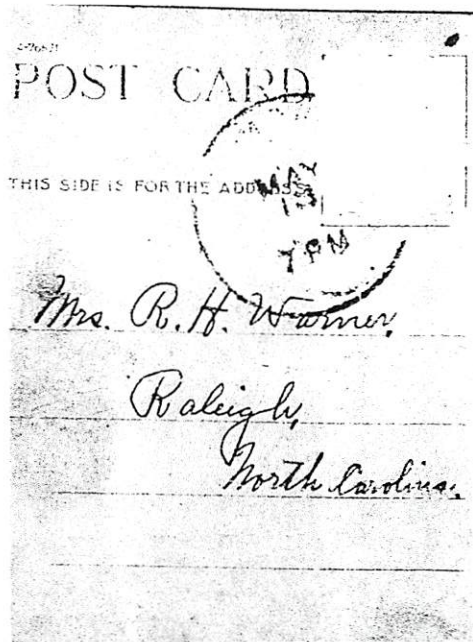 POST CARD
THIS SIDE IS FOR THE ADDRESS
MAY
7 PM
Mrs. R. H. Warner,
Raleigh,
North Carolina.